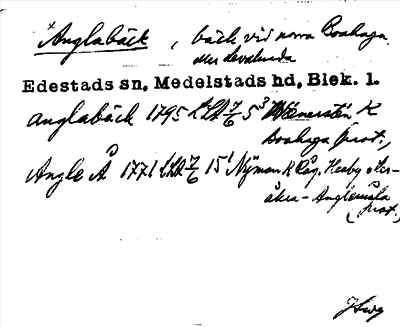 ×Anglabäck, bäck vid norra Boahaga
eller Levalunda
Edestads sn, Medelstads hd, Blek. l.
Anglabäck 1795 LSA 7/6 5³ Wenerstén K
Boahaga prot.,
Angle Å 1771 LSA 7/6 15¹ Nyman K Råg. Heaby åker-
åkra - Anglemåla
(prot.)